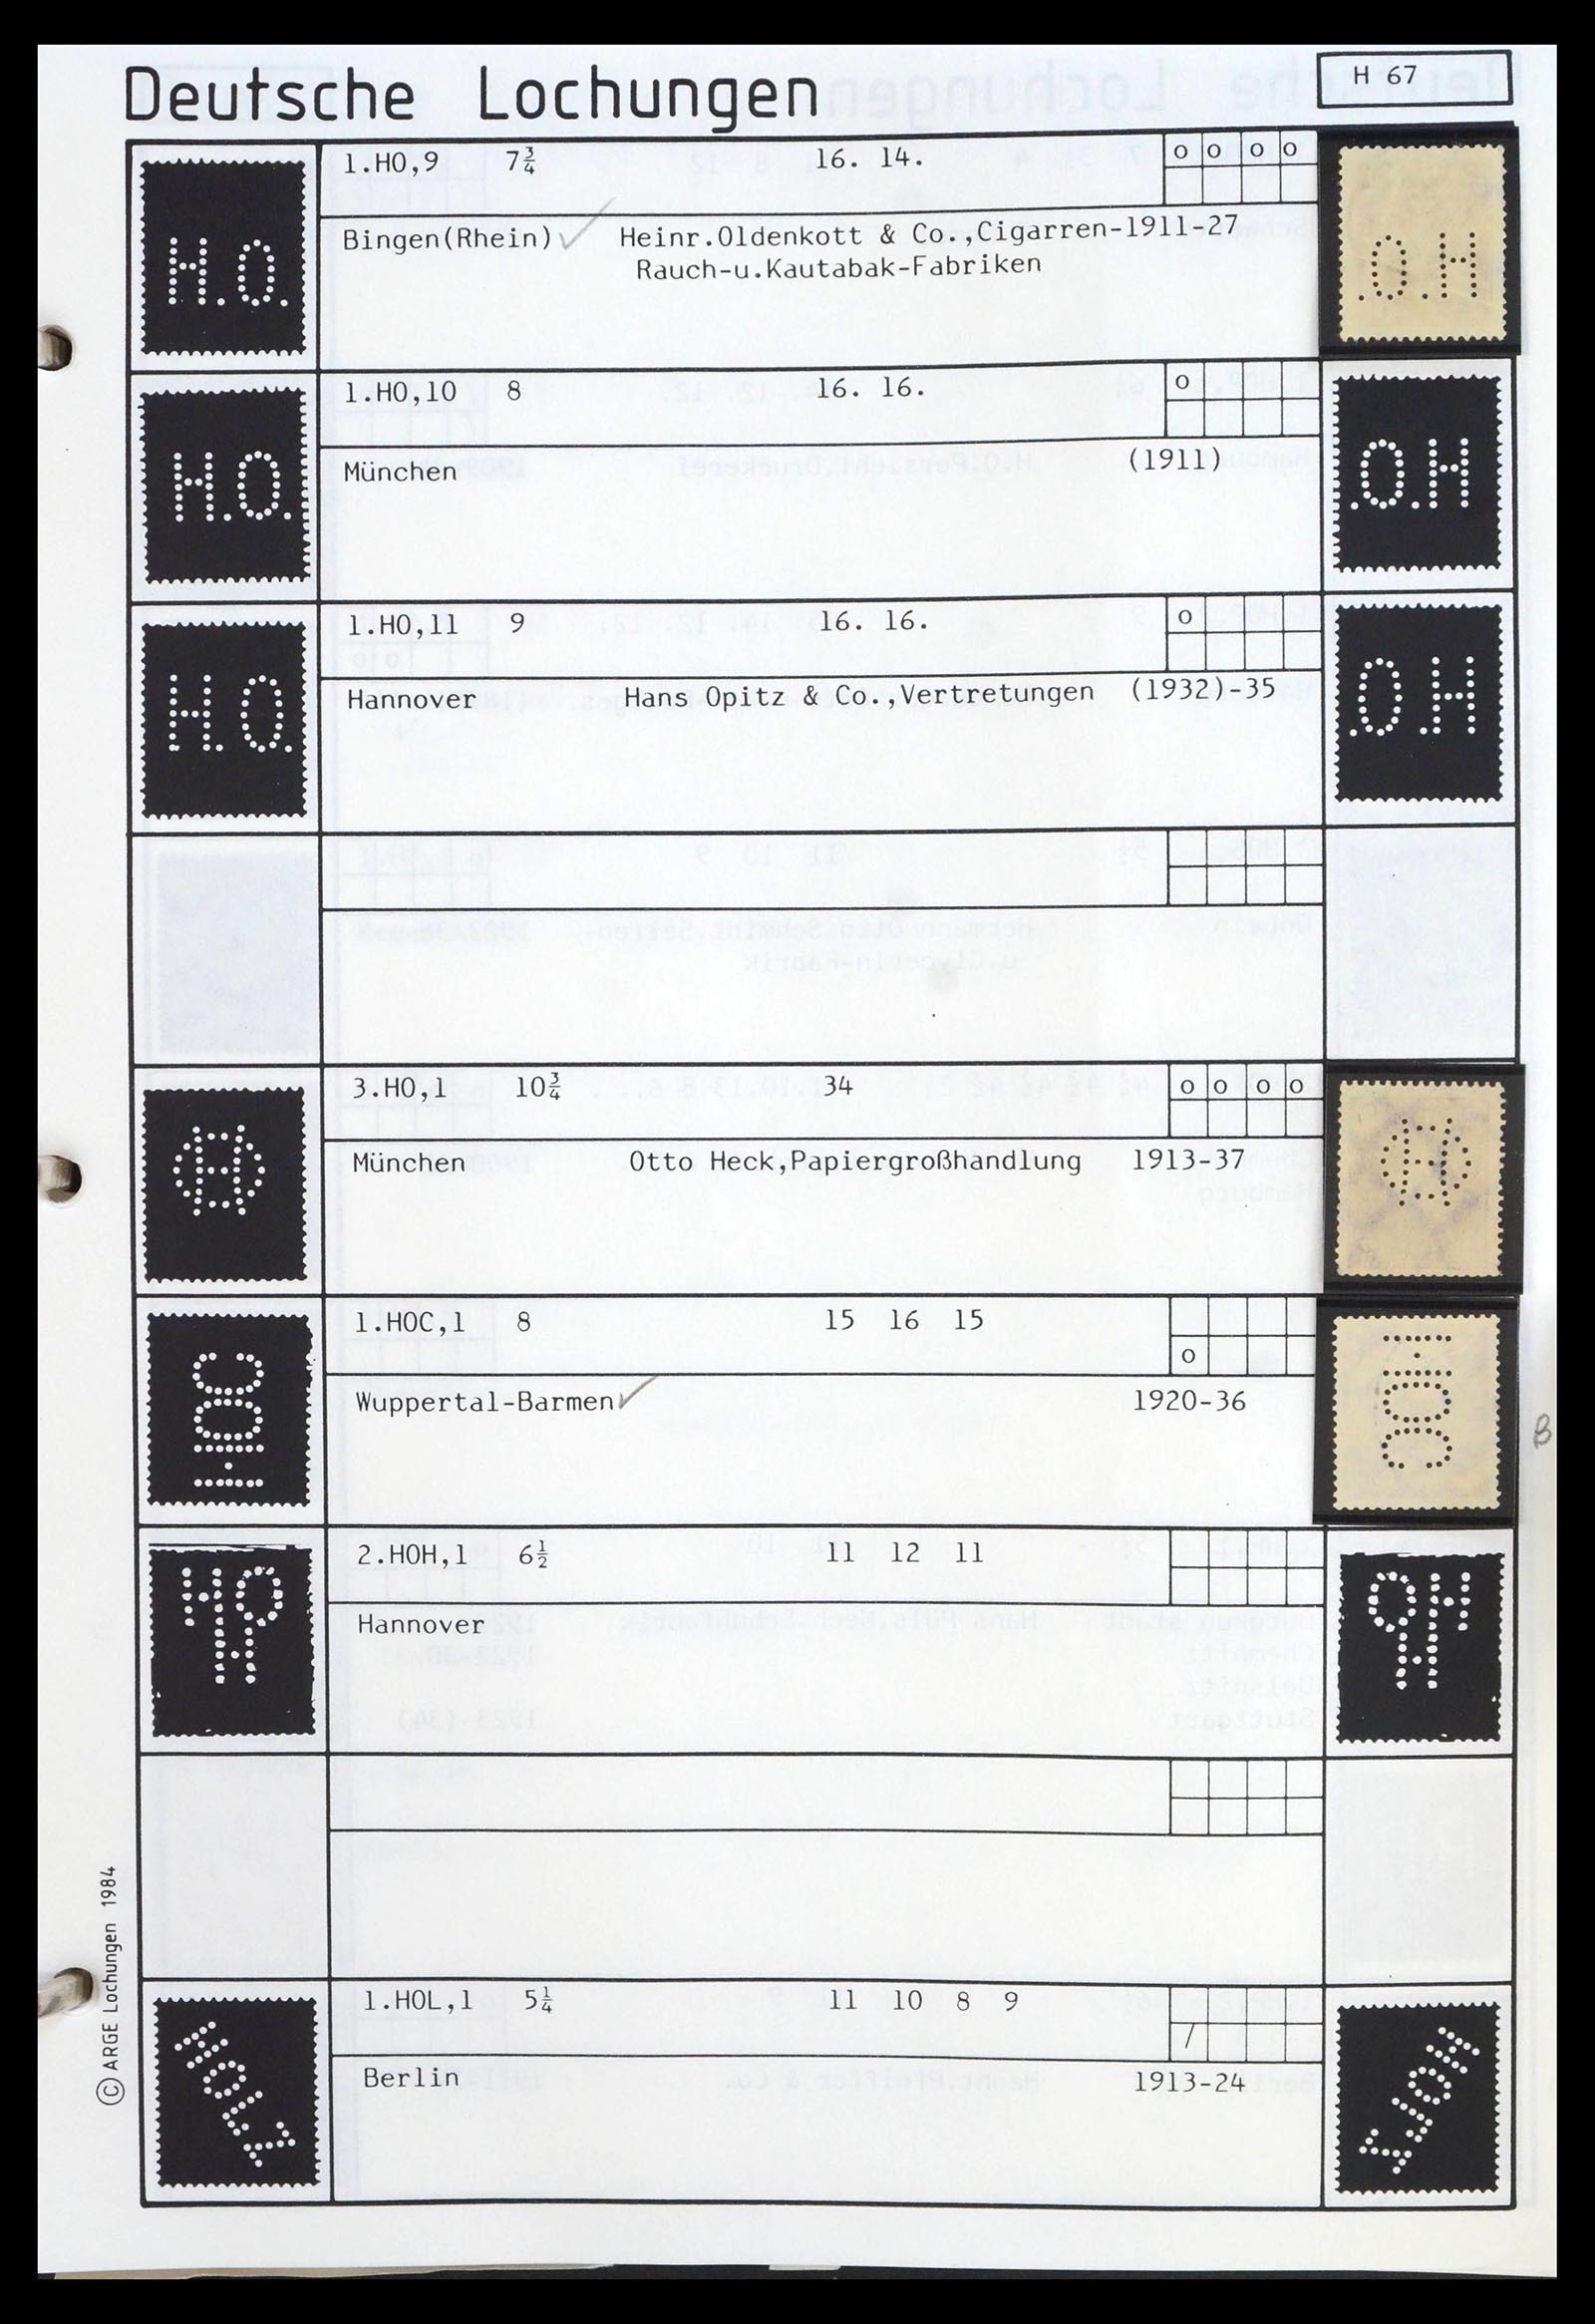 Deutsche Lochungen
H 67
H.O.
1.HO,9 7¾ 16. 14. o o o o
Bingen(Rhein) Heinr.Oldenkott & Co.,Cigarren-1911-27
Rauch-u.Kautabak-Fabriken
H.O.
1.HO,10 8 16. 16. o
München (1911)
H.O.
1.HO,11 9 16. 16. o
Hannover Hans Opitz & Co.,Vertretungen (1932)-35
3.HO,1 10¾ 34 o o o o
München Otto Heck,Papiergroßhandlung 1913-37
HOC
1.HOC,1 8 15 16 15
o
Wuppertal-Barmen 1920-36
B
HO
H
2.HOH,1 6½ 11 12 11
Hannover
HOLZ
1.HOL,1 5¼ 11 10 8 9
/
Berlin 1913-24
© ARGE Lochungen 1984